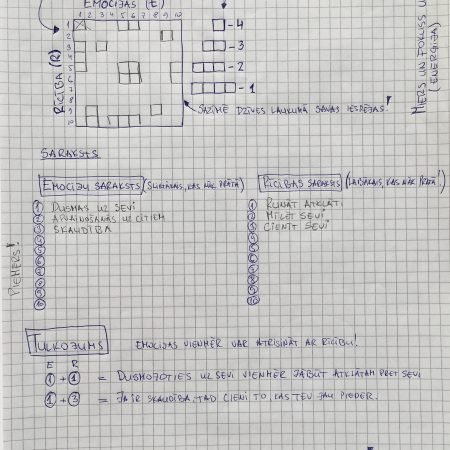 EMOCIJAS (E)
1 2 3 4 5 6 7 8 9 10
1
2
3
4
5
6
7
8
9
10
RĪCĪBA (R)
- 4
- 3
- 2
- 1
SAZĪMĒ DZĪVES LAUKUMĀ SAVAS IESPĒJAS!
MIERS UN FOKUSS UN
(ENERĢIJA)
SARAKSTS
EMOCIJU SARAKSTS (SLIKTĀKAIS, KAS NĀK PRĀTĀ)
1 DUSMAS UZ SEVI
2 APVAINOŠANĀS UZ CITIEM
3 SKAUDĪBA
4
5
6
7
8
9
10
RĪCĪBAS SARAKSTS (LABĀKAIS, KAS NĀK PRĀTĀ!)
1 RUNĀT ATKLĀTI
2 MĪLĒT SEVI
3 CIENĪT SEVI
4
5
6
7
8
9
10
PIEMĒRS!
TULKOJUMS
EMOCIJAS VIENMĒR VAR ATRISINĀT AR RĪCĪBU!
E R
1 + 1 = DUSMOJOTIES UZ SEVI VIENMĒR JĀBŪT ATKLĀTAM PRET SEVI
1 + 3 = JA IR SKAUDĪBA, TAD CIENI TO, KAS TEV JAU PIEDER.